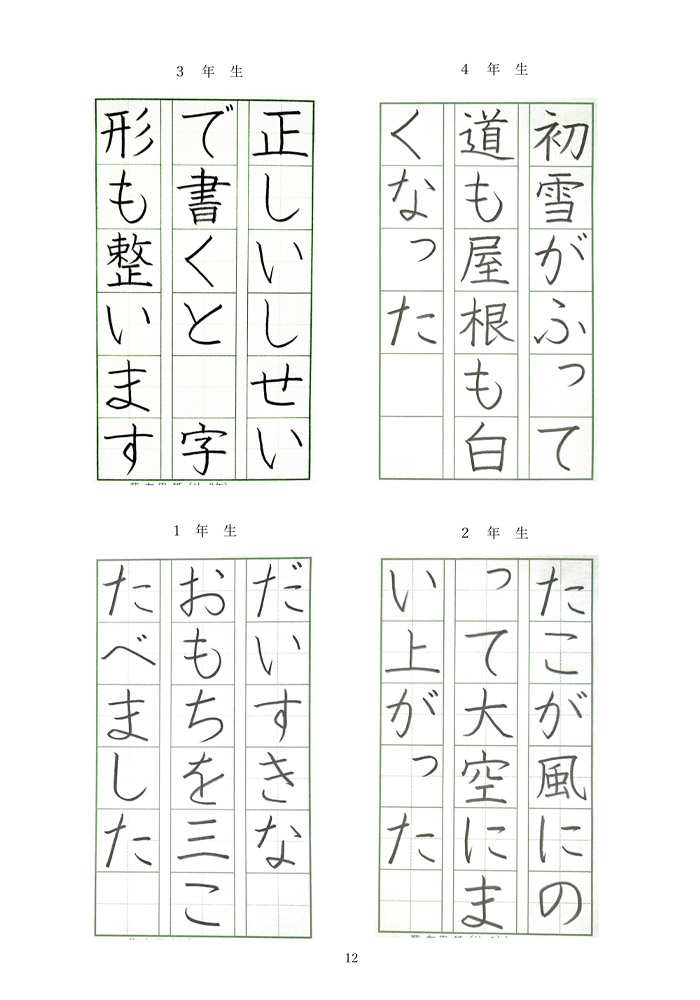 4年生
初雪がふって
道も屋根も白
くなった
3年生
正しいしせい
で書くと 字
形も整います
2年生
たこが風にの
って大空にま
い上がった
1年生
だいすきな
おもちを三こ
たべました
12